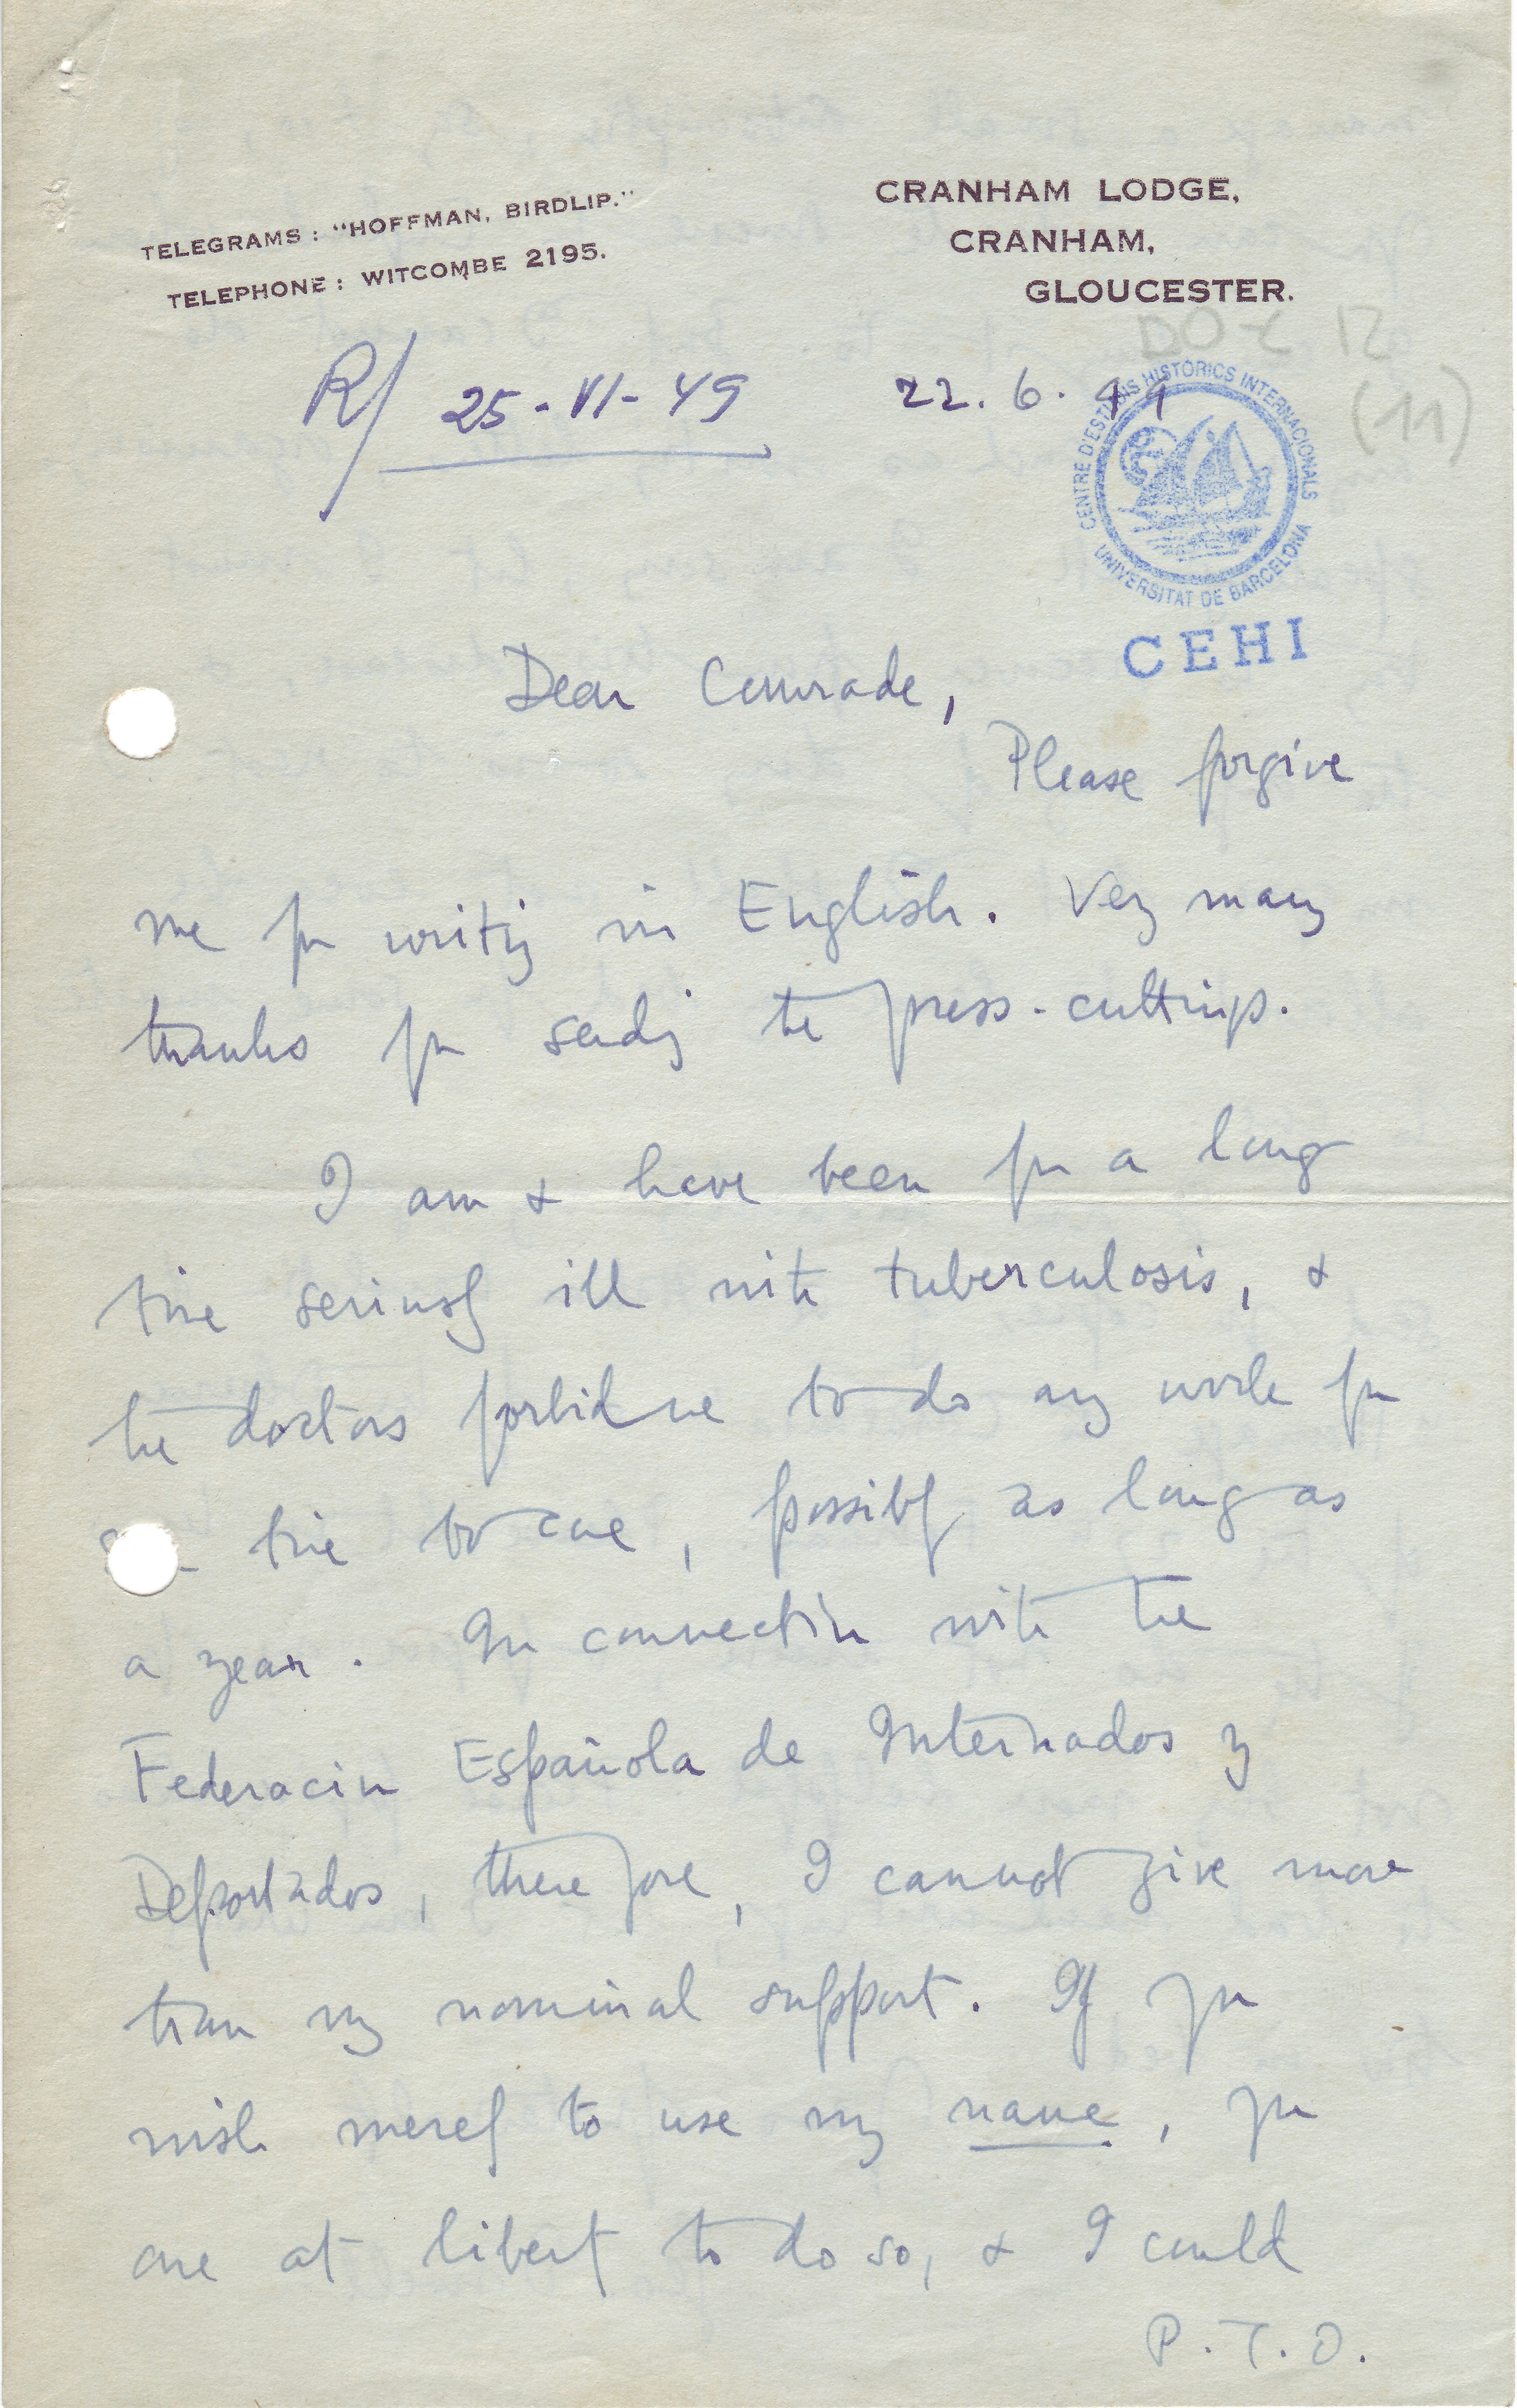 TELEGRAMS : "HOFFMAN, BIRDLIP."
TELEPHONE : WITCOMBE 2195.
CRANHAM LODGE,
CRANHAM,
GLOUCESTER.
DOC 12
(11)
R/ 25-VI-49
22. 6. 49
CENTRE D'ESTUDIS HISTÒRICS INTERNACIONALS
UNIVERSITAT DE BARCELONA
CEHI
Dear Comrade,
Please forgive
me for writing in English. Very many
thanks for sending the press-cuttings.
I am & have been for a long
time seriously ill with tuberculosis, &
the doctors forbid me to do any work for
time to come, possibly as long as
a year. In connection with the
Federacion Española de Internados y
Deportados, therefore, I cannot give more
than my nominal support. If you
wish merely to use my name, you
are at liberty to do so, & I could
P.T.O.